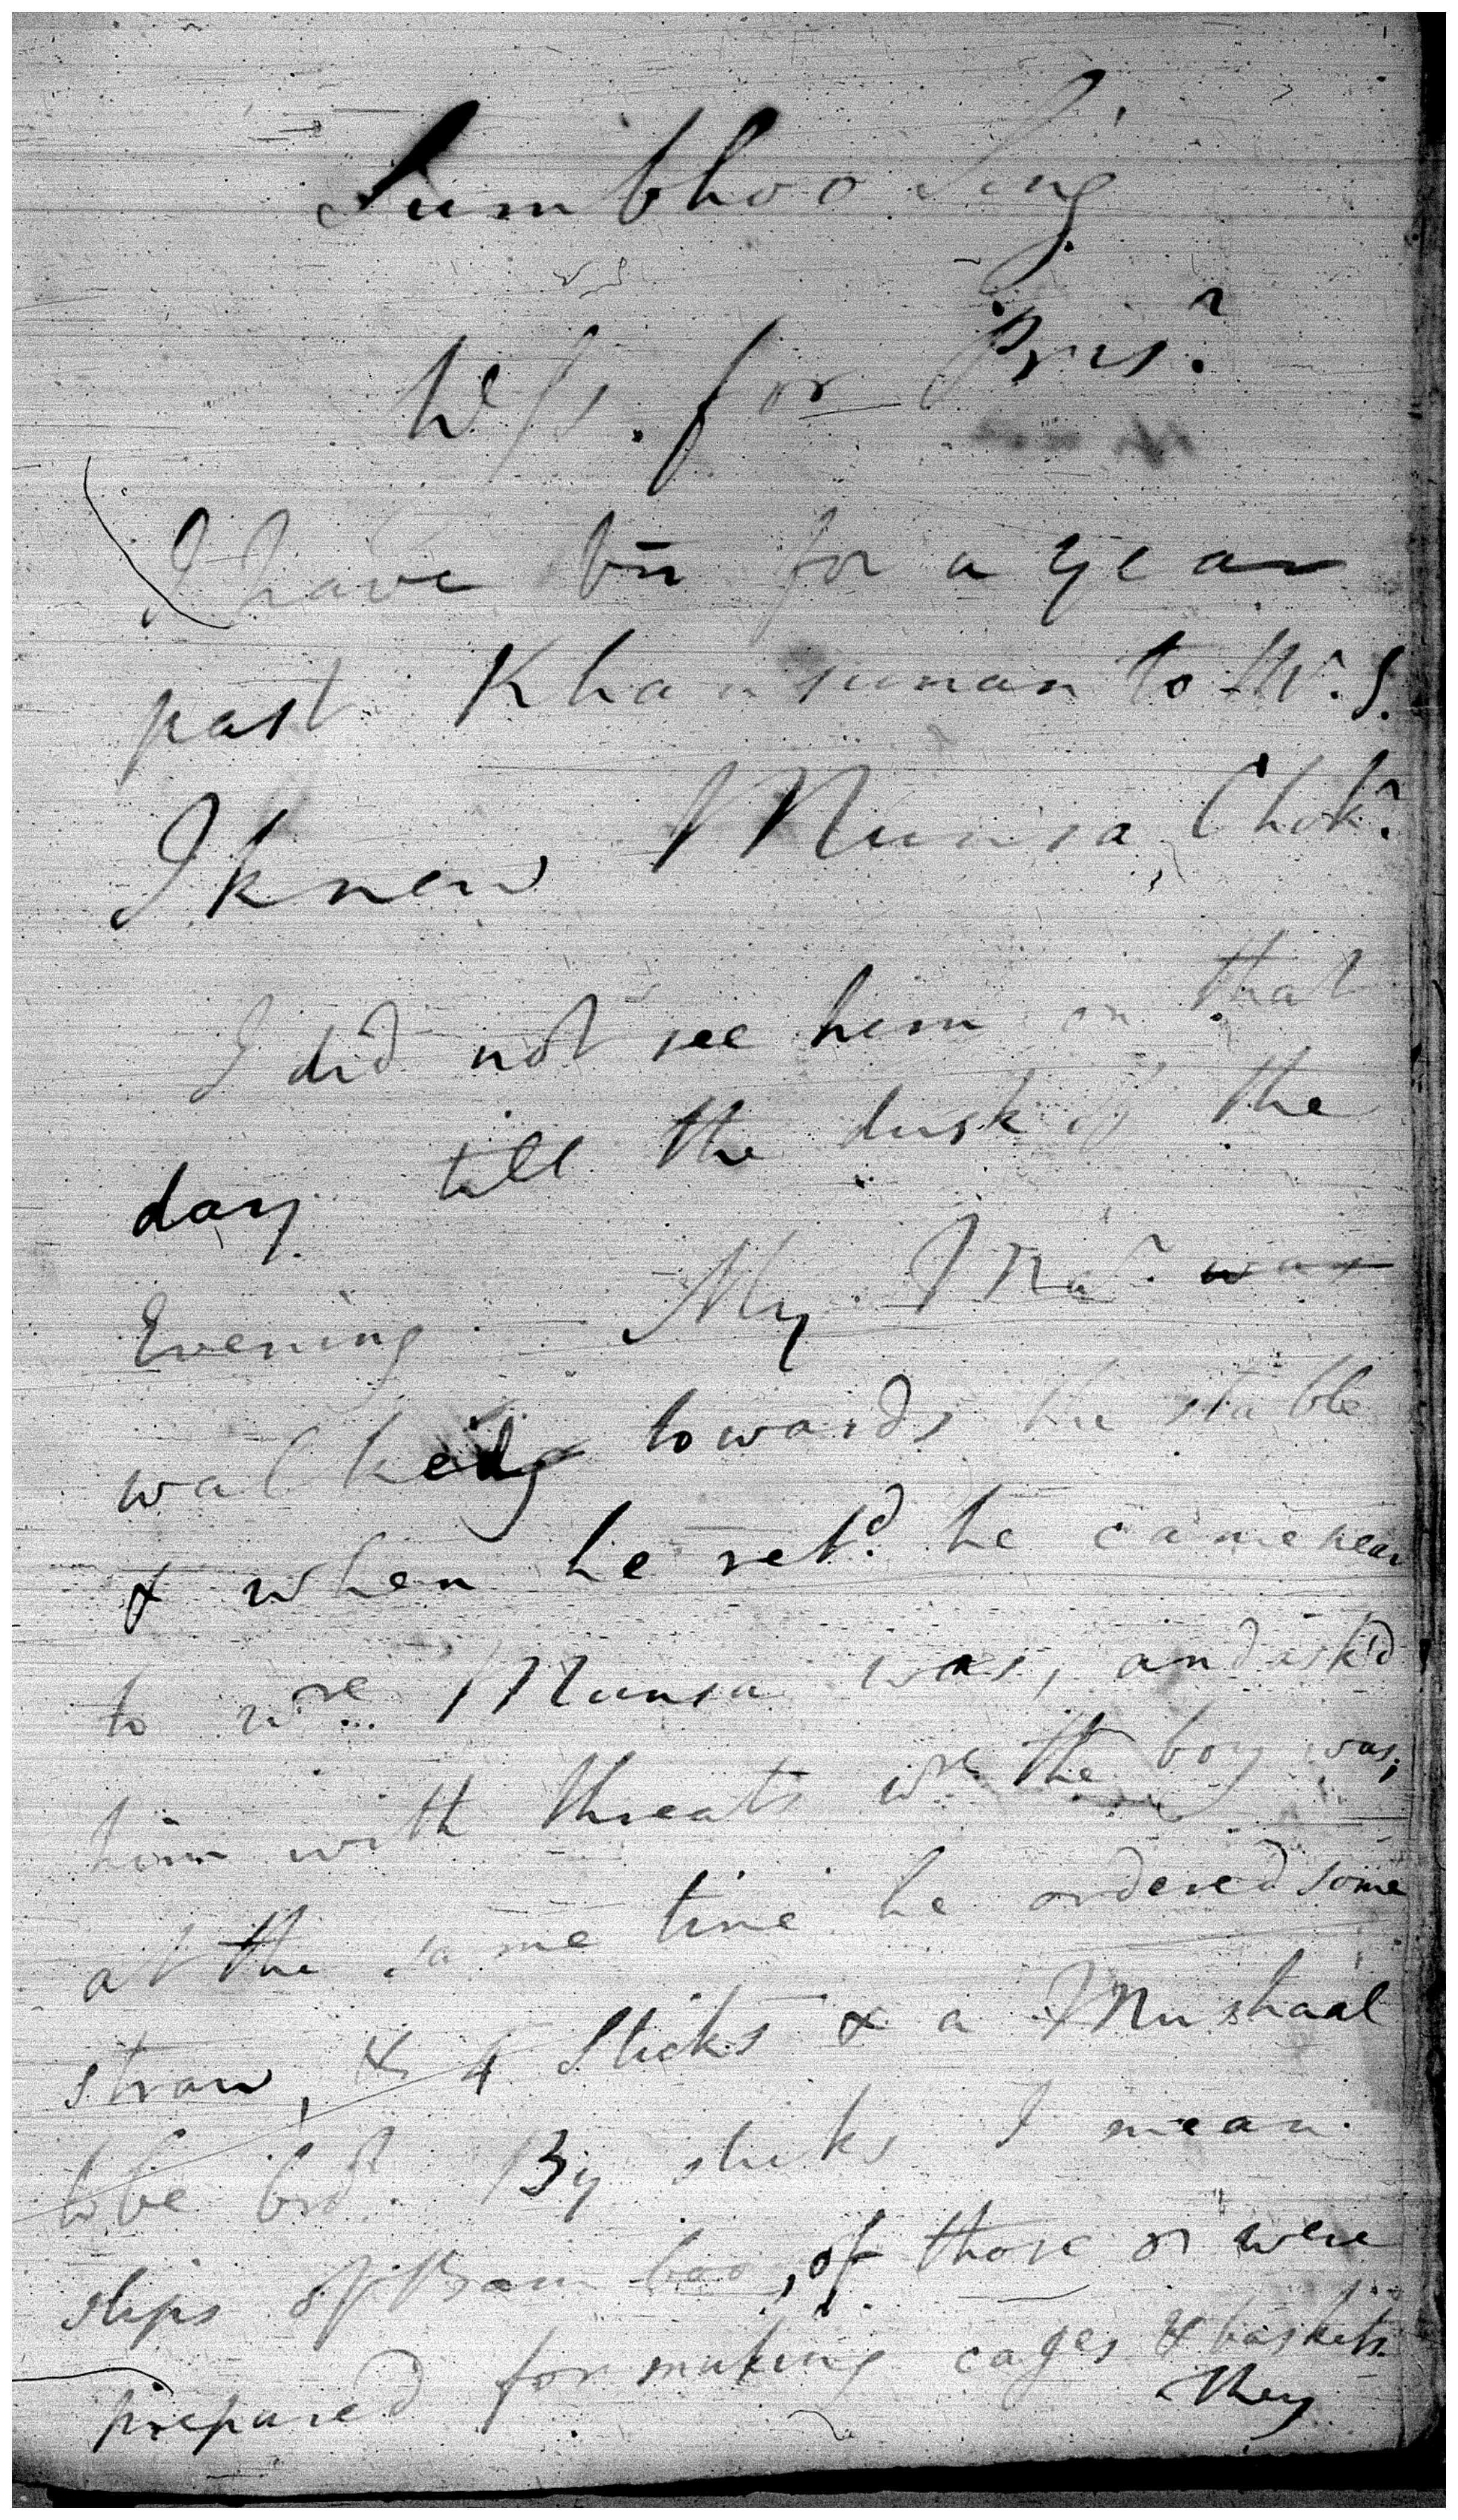 Sumbhoo Sing
Ws. for Prisr.
I have bn for a year
past Khansuman to Mr. S.
I knew Munsa Chokr.
I did not see him on that
day till the dusk of the
Evening My Mar. was
walked towards the stable
& when he retd. he came near
to wre Munsa was, and ask'd
him with threats wre the boy was,
at the same time he ordered some
straw, & 4 Sticks & a Mushaal
to be brt. By sticks I mean
slips of Bamboo, of those or were
prepared for making cages & baskets.
They